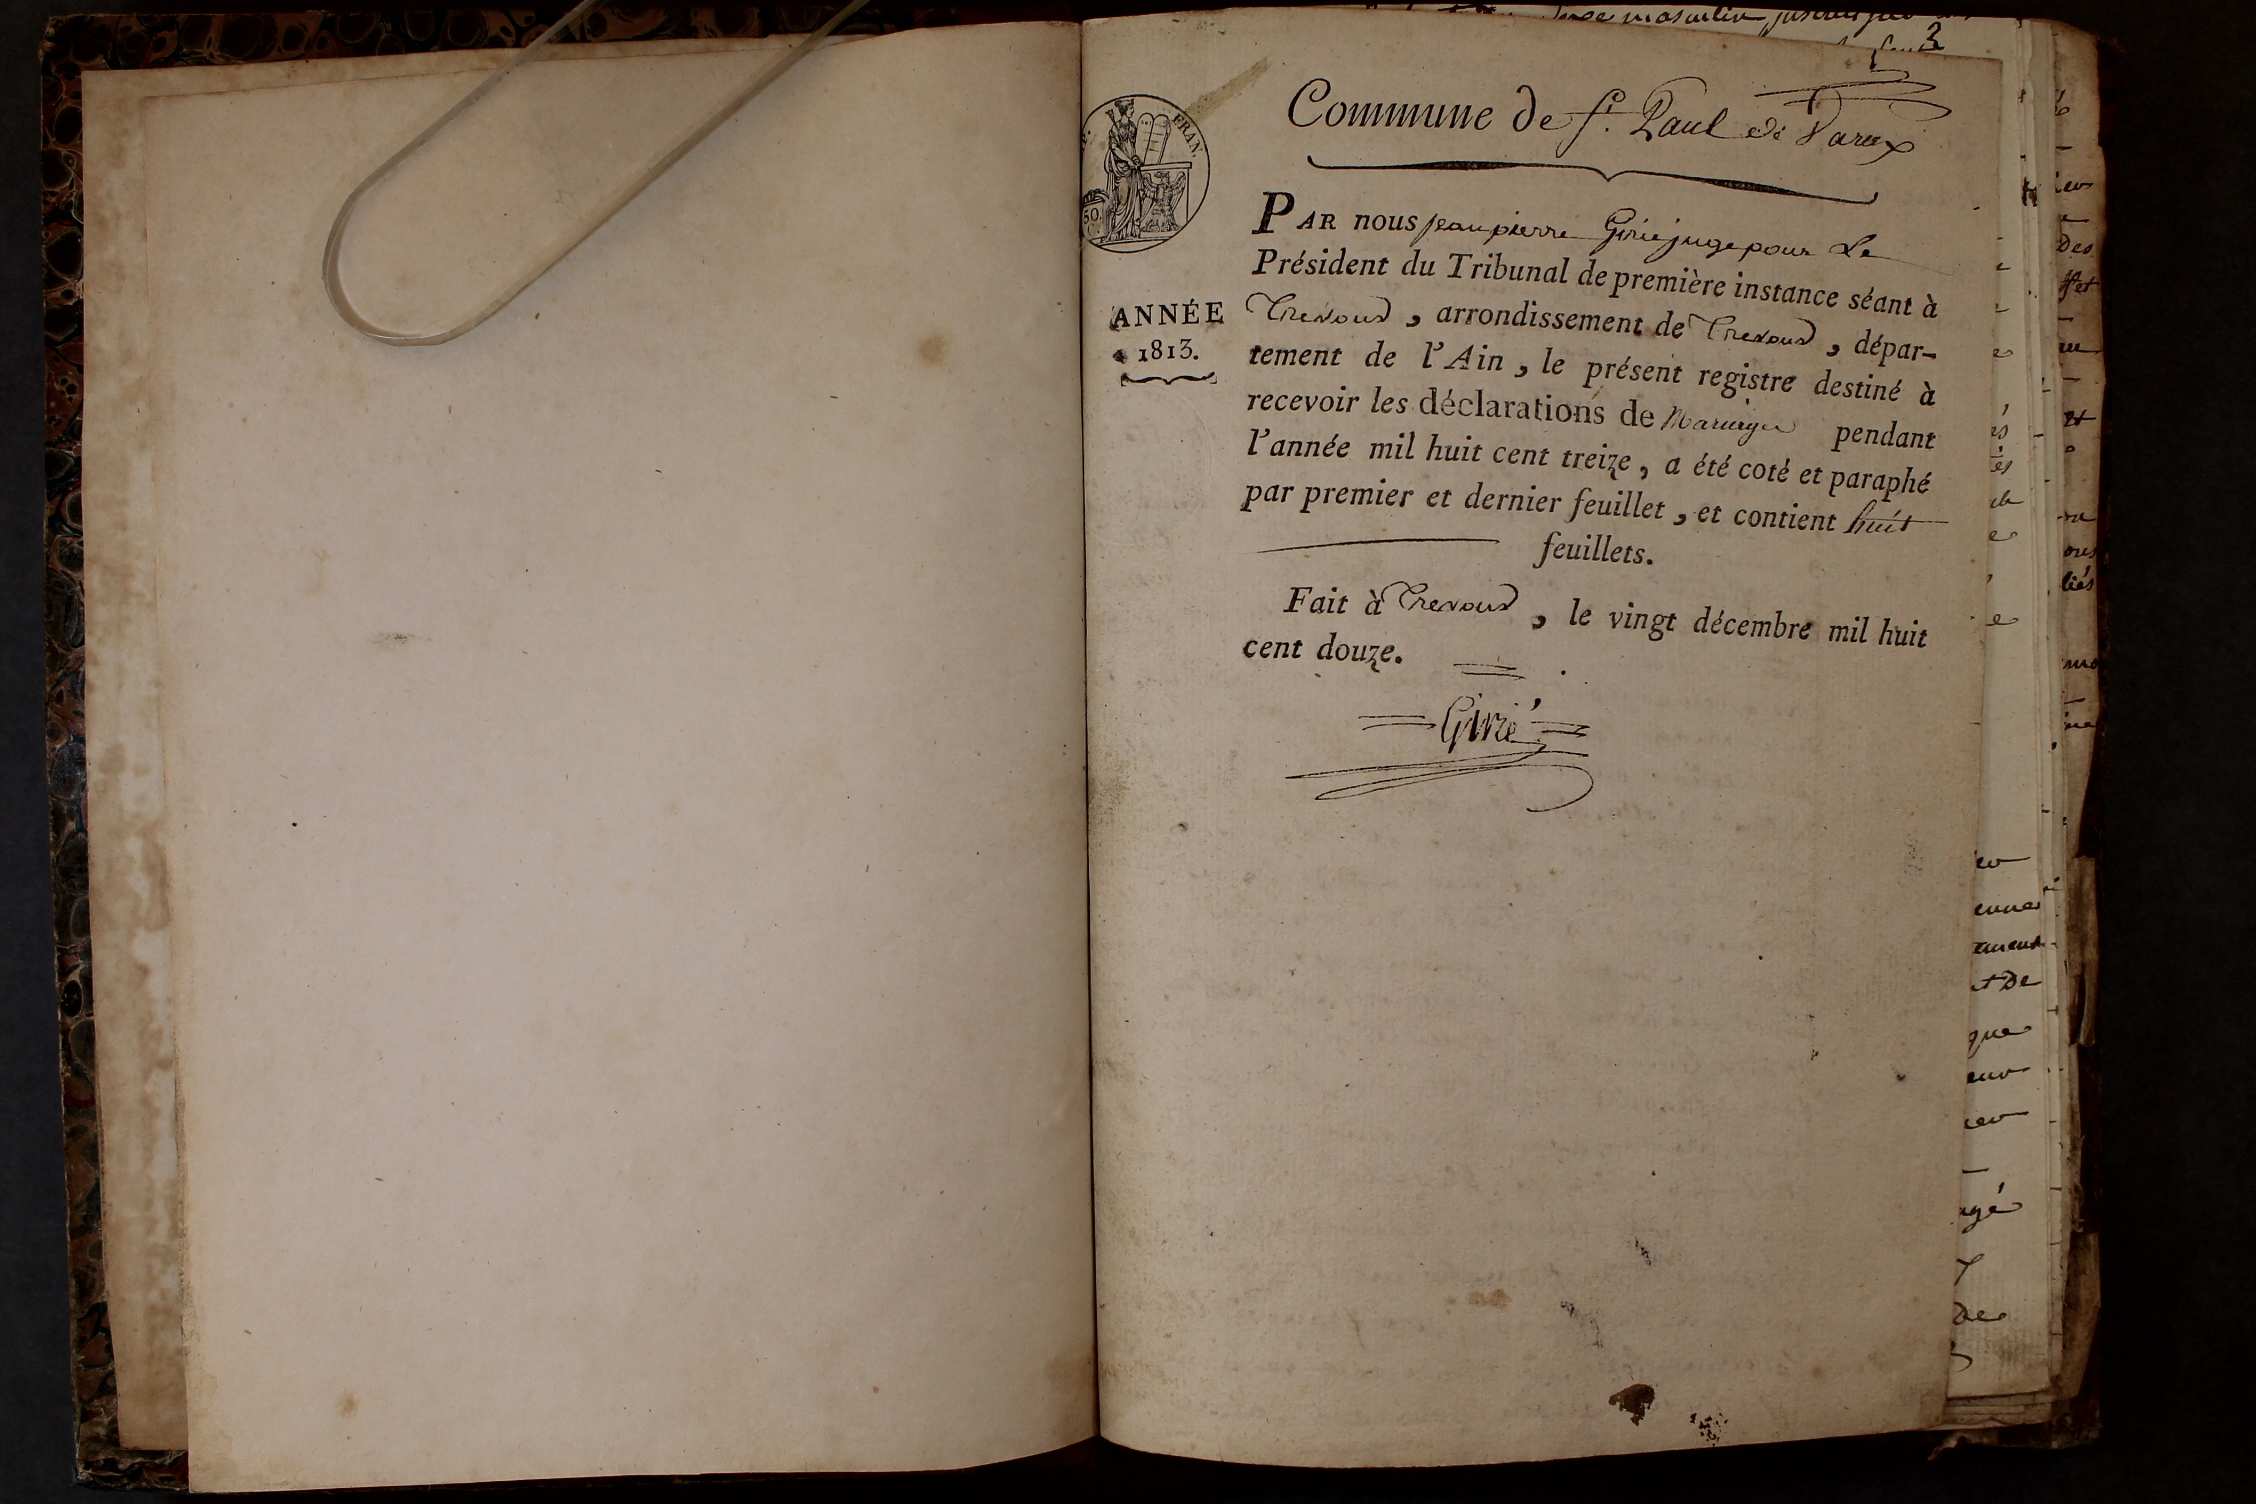 Commune de St. Paul de Varax
FRAN.
50.
ANNÉE
1813.
PAR nous jean pierre Girié juge pour Le
Président du Tribunal de première instance séant à
Trevoux, arrondissement de Trevoux, dépar-
tement de l'Ain, le présent registre destiné à
recevoir les déclarations de Mariages pendant
l'année mil huit cent treize, a été coté et paraphé
par premier et dernier feuillet, et contient huit
feuillets.
Fait à Trevoux, le vingt décembre mil huit
cent douze.
Girié